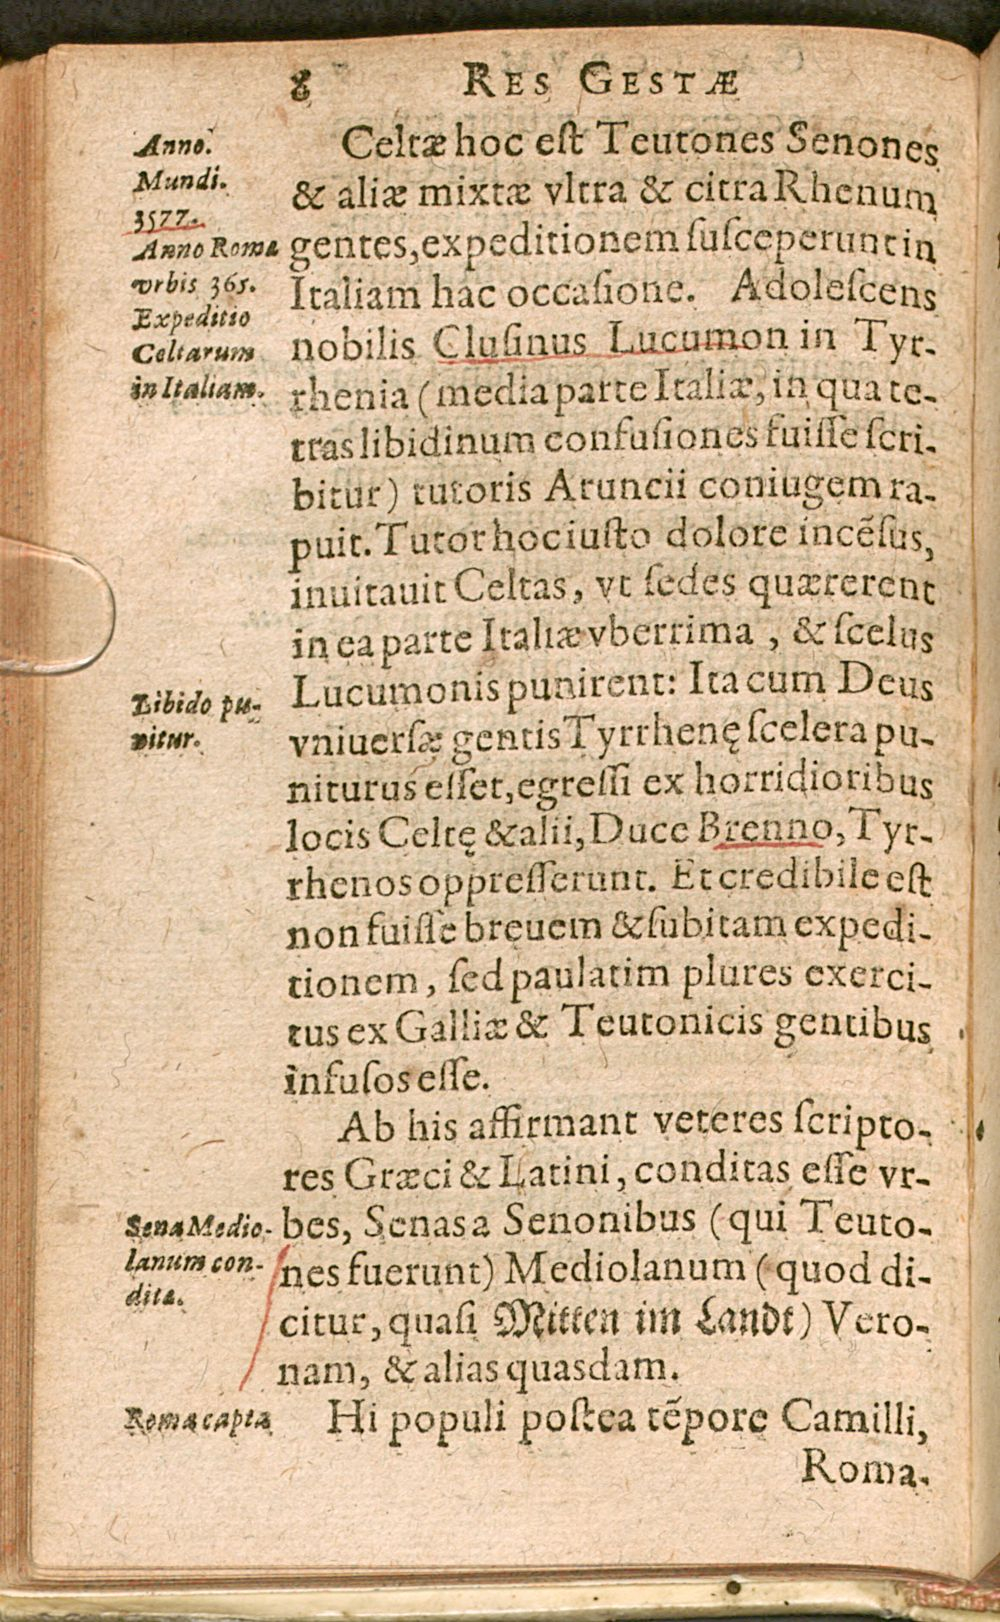 8 RES GESTÆ
Anno.
Mundi.
3577.
Anno Romæ
vrbis 365.
Expeditio
Celtarum
in Italiam.
Celtæ hoc eſt Teutones Senones
& aliæ mixtæ vltra & citra Rhenum
gentes, expeditionem ſuſceperunt in
Italiam hac occaſione. Adoleſcens
nobilis Cluſinus Lucumon in Tyr-
rhenia (media parte Italiæ, in qua te-
tras libidinum confuſiones fuiſſe ſcri-
bitur) tutoris Aruncii coniugem ra-
puit. Tutor hoc iuſto dolore incẽſus,
inuitauit Celtas, vt ſedes quærerent
in ea parte Italiæ vberrima, & ſcelus
Libido pu-
nitur.
Lucumonis punirent: Ita cum Deus
vniuerſæ gentis Tyrrhenę ſcelera pu-
niturus eſſet, egreſſi ex horridioribus
locis Celtę & alii, Duce Brenno, Tyr-
rhenos oppreſſerunt. Et credibile eſt
non fuiſſe breuem & ſubitam expedi-
tionem, ſed paulatim plures exerci-
tus ex Galliæ & Teutonicis gentibus
infuſos eſſe.
Ab his affirmant veteres ſcripto-
res Græci & Latini, conditas eſſe vr-
Sena Medio-
lanum con-
dita.
bes, Senas a Senonibus (qui Teuto-
nes fuerunt) Mediolanum (quod di-
citur, quaſi Mitten im Landt) Vero-
nam, & alias quasdam.
Roma capta
Hi populi poſtea tẽpore Camilli,
Roma.